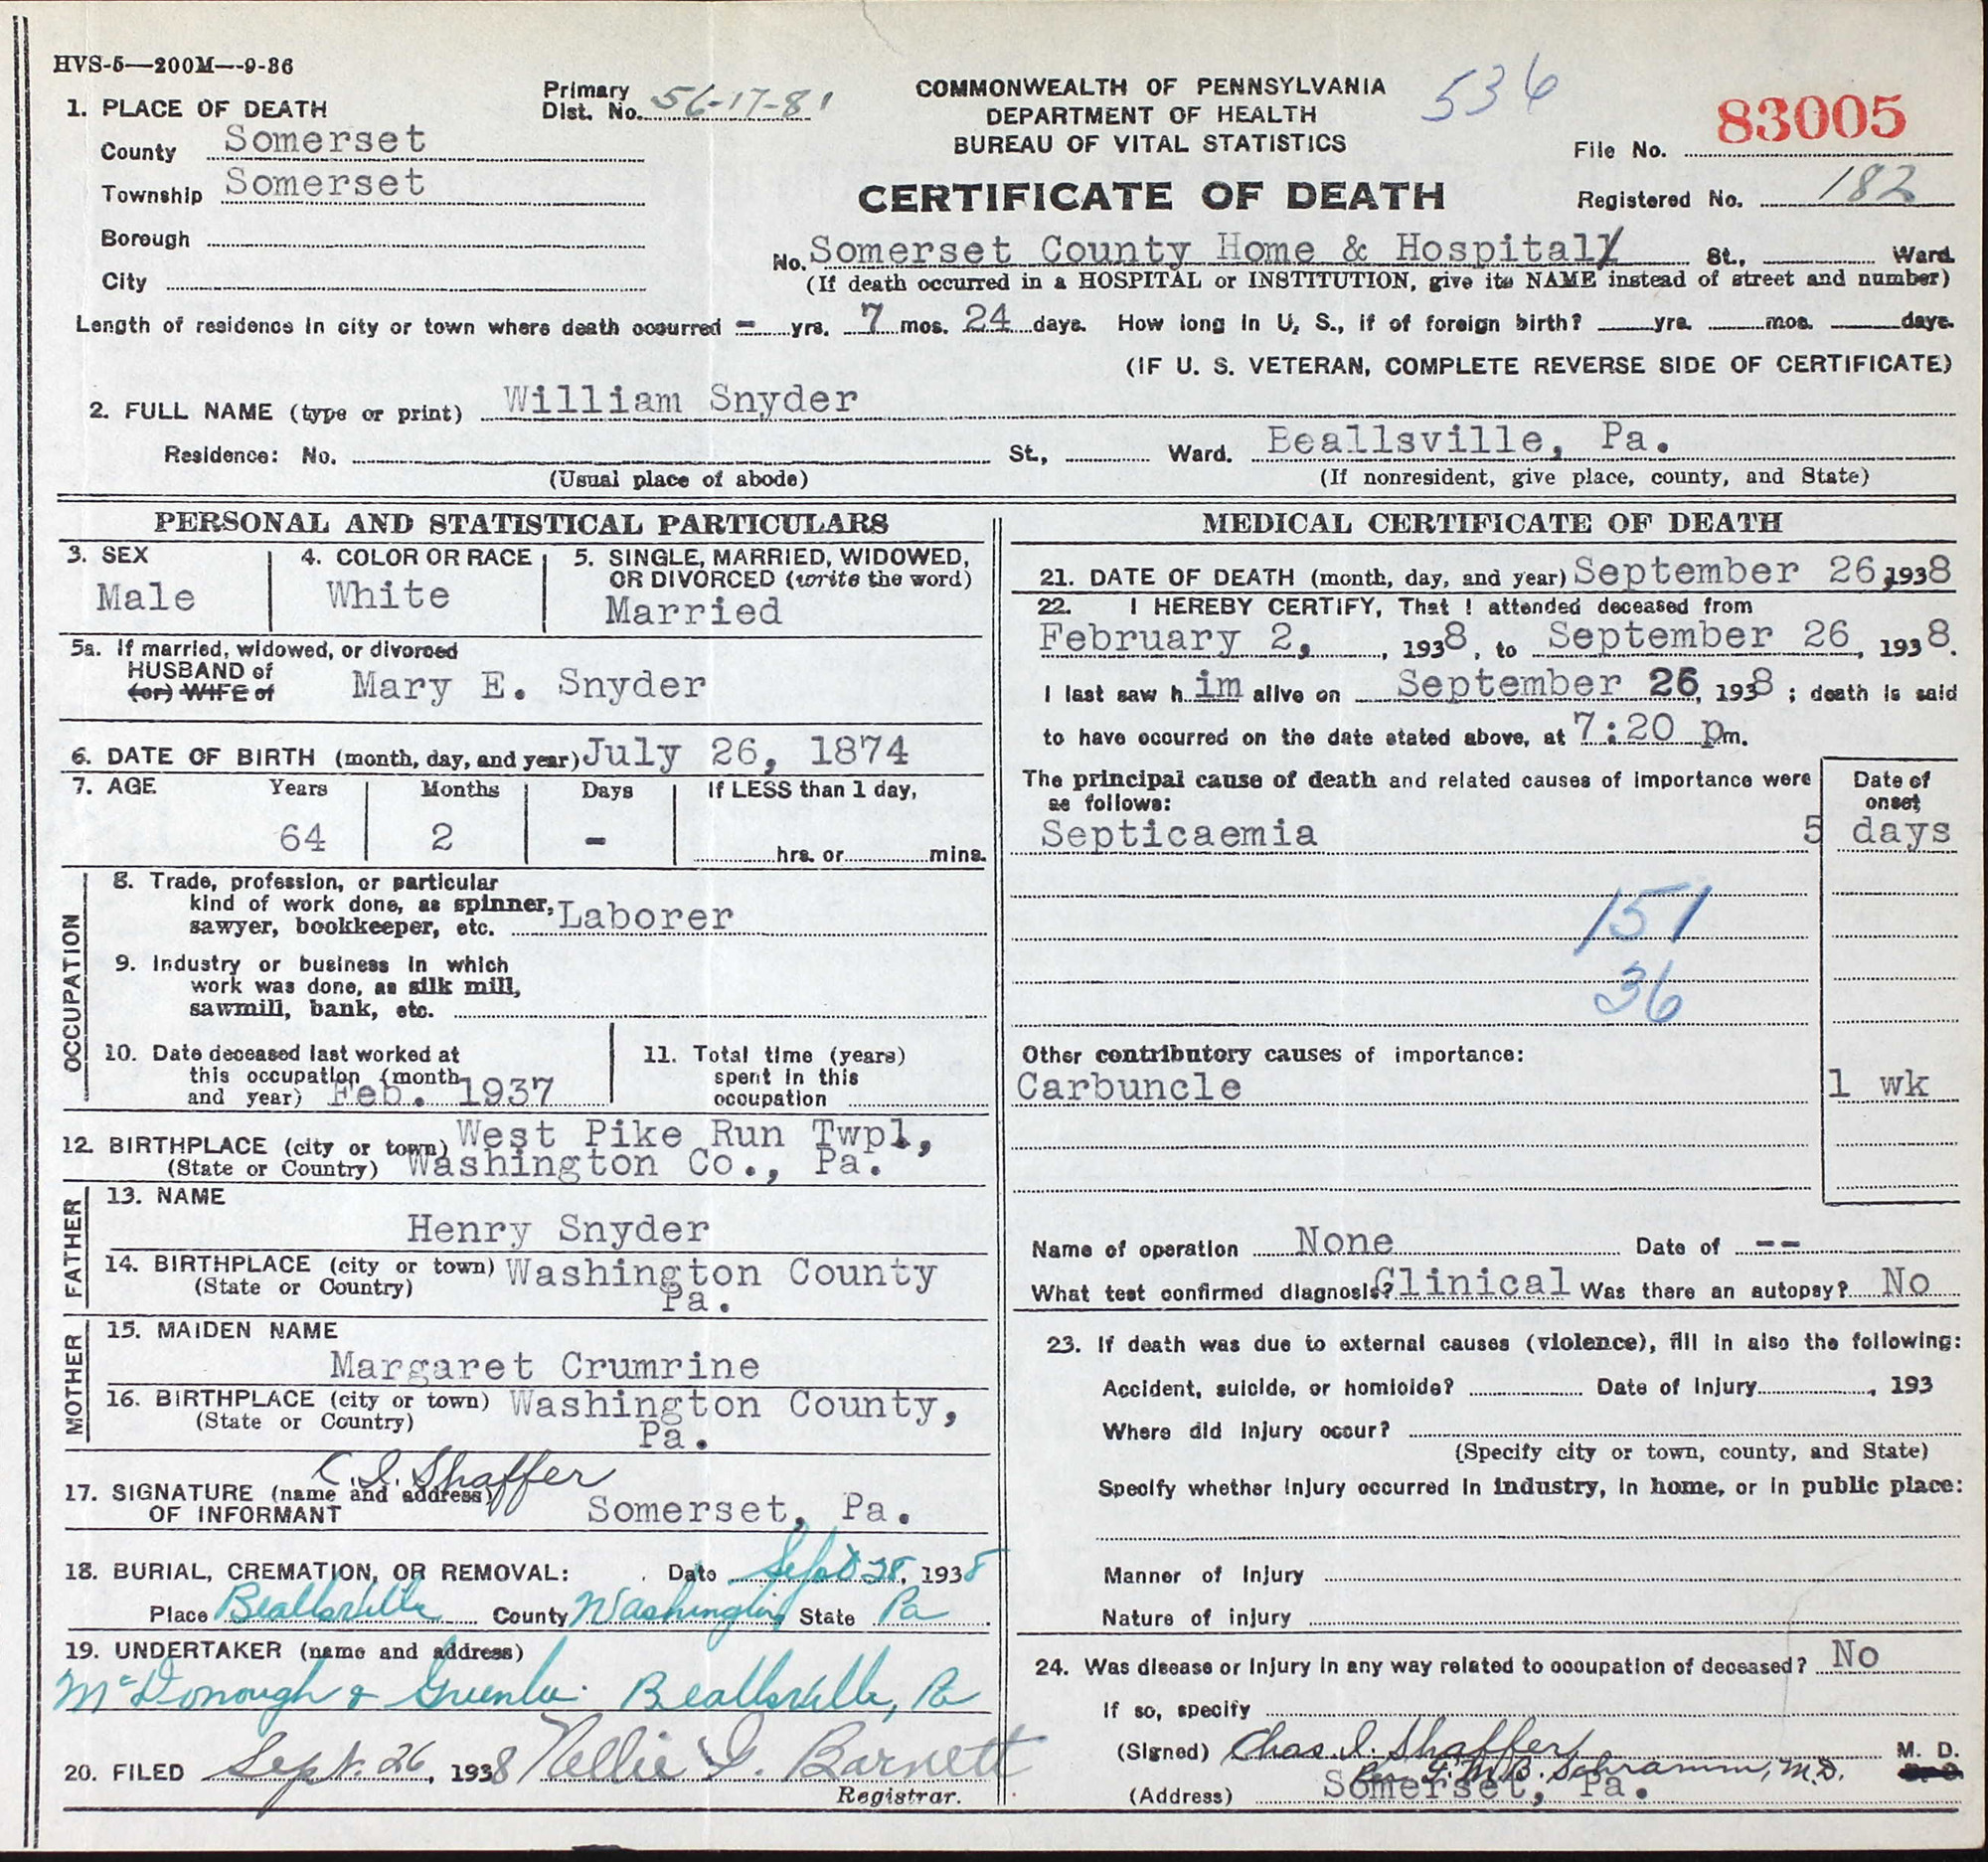 HVS-5—200M—9-36
Primary
Dist. No. 56-17-81
COMMONWEALTH OF PENNSYLVANIA
DEPARTMENT OF HEALTH
BUREAU OF VITAL STATISTICS
536
83005
File No.
Registered No. 182
CERTIFICATE OF DEATH
1. PLACE OF DEATH
County Somerset
Township Somerset
Borough
City
No. Somerset County Home & Hospital St., Ward.
(If death occurred in a HOSPITAL or INSTITUTION, give its NAME instead of street and number)
Length of residence in city or town where death occurred - yrs. 7 mos. 24 days. How long in U. S., if of foreign birth? yrs. mos. days.
(IF U. S. VETERAN, COMPLETE REVERSE SIDE OF CERTIFICATE)
2. FULL NAME (type or print) William Snyder
Residence: No. St., Ward. Beallsville, Pa.
(Usual place of abode) (If nonresident, give place, county, and State)
PERSONAL AND STATISTICAL PARTICULARS
3. SEX
Male
4. COLOR OR RACE
White
5. SINGLE, MARRIED, WIDOWED,
OR DIVORCED (write the word)
Married
5a. If married, widowed, or divorced
HUSBAND of
(or) WIFE of
Mary E. Snyder
6. DATE OF BIRTH (month, day, and year) July 26, 1874
7. AGE Years Months Days If LESS than 1 day,
64 2 - hrs. or mins.
OCCUPATION
8. Trade, profession, or particular
kind of work done, as spinner,
sawyer, bookkeeper, etc. Laborer
9. Industry or business in which
work was done, as silk mill,
sawmill, bank, etc.
10. Date deceased last worked at
this occupation (month
and year) Feb. 1937
11. Total time (years)
spent in this
occupation
12. BIRTHPLACE (city or town) West Pike Run Twpl,
(State or Country) Washington Co., Pa.
FATHER
13. NAME
Henry Snyder
14. BIRTHPLACE (city or town) Washington County
(State or Country) Pa.
MOTHER
15. MAIDEN NAME
Margaret Crumrine
16. BIRTHPLACE (city or town) Washington County,
(State or Country) Pa.
C. I. Shaffer
17. SIGNATURE (name and address)
OF INFORMANT Somerset, Pa.
18. BURIAL, CREMATION, OR REMOVAL: Date Sept 28, 1938
Place Beallsville County Washington State Pa
19. UNDERTAKER (name and address)
McDonough & Greenlee Beallsville, Pa
20. FILED Sept. 26, 1938 Nellie I. Barnett
Registrar.
MEDICAL CERTIFICATE OF DEATH
21. DATE OF DEATH (month, day, and year) September 26, 1938
22. I HEREBY CERTIFY, That I attended deceased from
February 2, , 1938, to September 26, 1938.
I last saw h im alive on September 26, 1938; death is said
to have occurred on the date stated above, at 7:20 pm.
The principal cause of death and related causes of importance were
as follows:
Date of
onset
Septicaemia 5 days
151
36
Other contributory causes of importance:
Carbuncle 1 wk
Name of operation None Date of --
What test confirmed diagnosis? Clinical Was there an autopsy? No
23. If death was due to external causes (violence), fill in also the following:
Accident, suicide, or homicide? Date of injury , 193
Where did injury occur?
(Specify city or town, county, and State)
Specify whether injury occurred in industry, in home, or in public place:
Manner of injury
Nature of injury
24. Was disease or injury in any way related to occupation of deceased? No
If so, specify
(Signed) Chas I. Shaffer M. D.
Per F. M. B. Schramm, M.D.
(Address) Somerset, Pa.